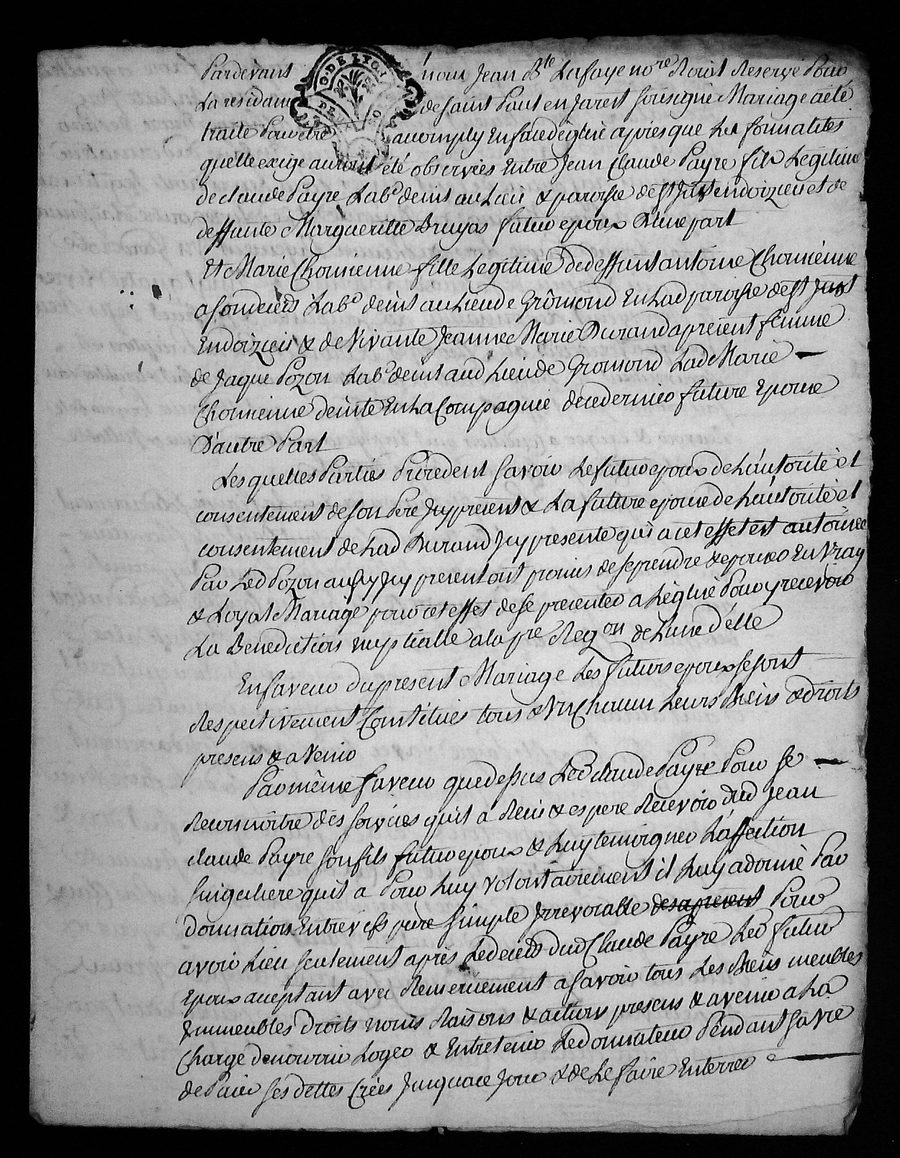 Pardevant nous Jean Bte Lafaye nore Royal Reservé Pour
La residance de Saint Paul en Jarest soussigné Mariage a eté
traité Pour être accomply en face d'eglise apres que Les formalités
quelle exige auront été observées Entre Jean Claude Payre fils Legitime
de claude Payre Labr demt au Lieu & paroisse de St Just en doizieu et de
deffunte Margueritte Bruyas futur epoux D'une part
Et Marie Chomienne fille Legitime de deffunt antoine Chomienne
Labr demt au Lieu de Gromond En Lad paroisse de St Just
En doizieu & de Vivante Jeanne Marie Durand a present femme
de Jaque Pozon Labr demt aud Lieu de Gromond Lade Marie
Chomienne demte En La Compagnie de ce dernier future Epouse
D'autre Part
Les quelles Parties Procedent savoir Le futur epoux de L'autorité et
consentement de son Pere Icy present & La future epouse de L'autorité et
consentement de Lad Durand Icy presente qui a cet effet est autorisée
Par Led Pozon aussy Icy present ont promis de se prendre & epouser En Vray
& Loyal Mariage pour cet effet de se presenter a L'eglise Pour y recevoir
La Benediction nuptialle a la pre Reqon de L'un d'elle
En faveur du present Mariage Les futurs epoux se sont
Respectivement Constitués tous & Un Chacun Leurs Biens & droits
presens & a Venir
Par même faveur que dessus Led claude Payre Pour se
Reconnoitre des services qu'il a Reçus & espere Recevoir dud Jean
claude Payre son fils futur epoux & Luy temoigner L'affection
singuliere qu'il a Pour Luy volontairement il Luy a donné Par
donnation Entre vifs pure simple Irrevocable Pour
avoir Lieu seulement après Le decés dud Claude Payre Led futur
Epoux acceptant avec Remerciement a savoir tous Les Biens meubles
Immeubles droits noms Raisons & actions presens & avenir a La
Charge de nourrir Loger & Entretenir Le donnateur Pendant sa vie
de Païer ses dettes Crées Jusqua ce Jour & de Le faire Enterrer